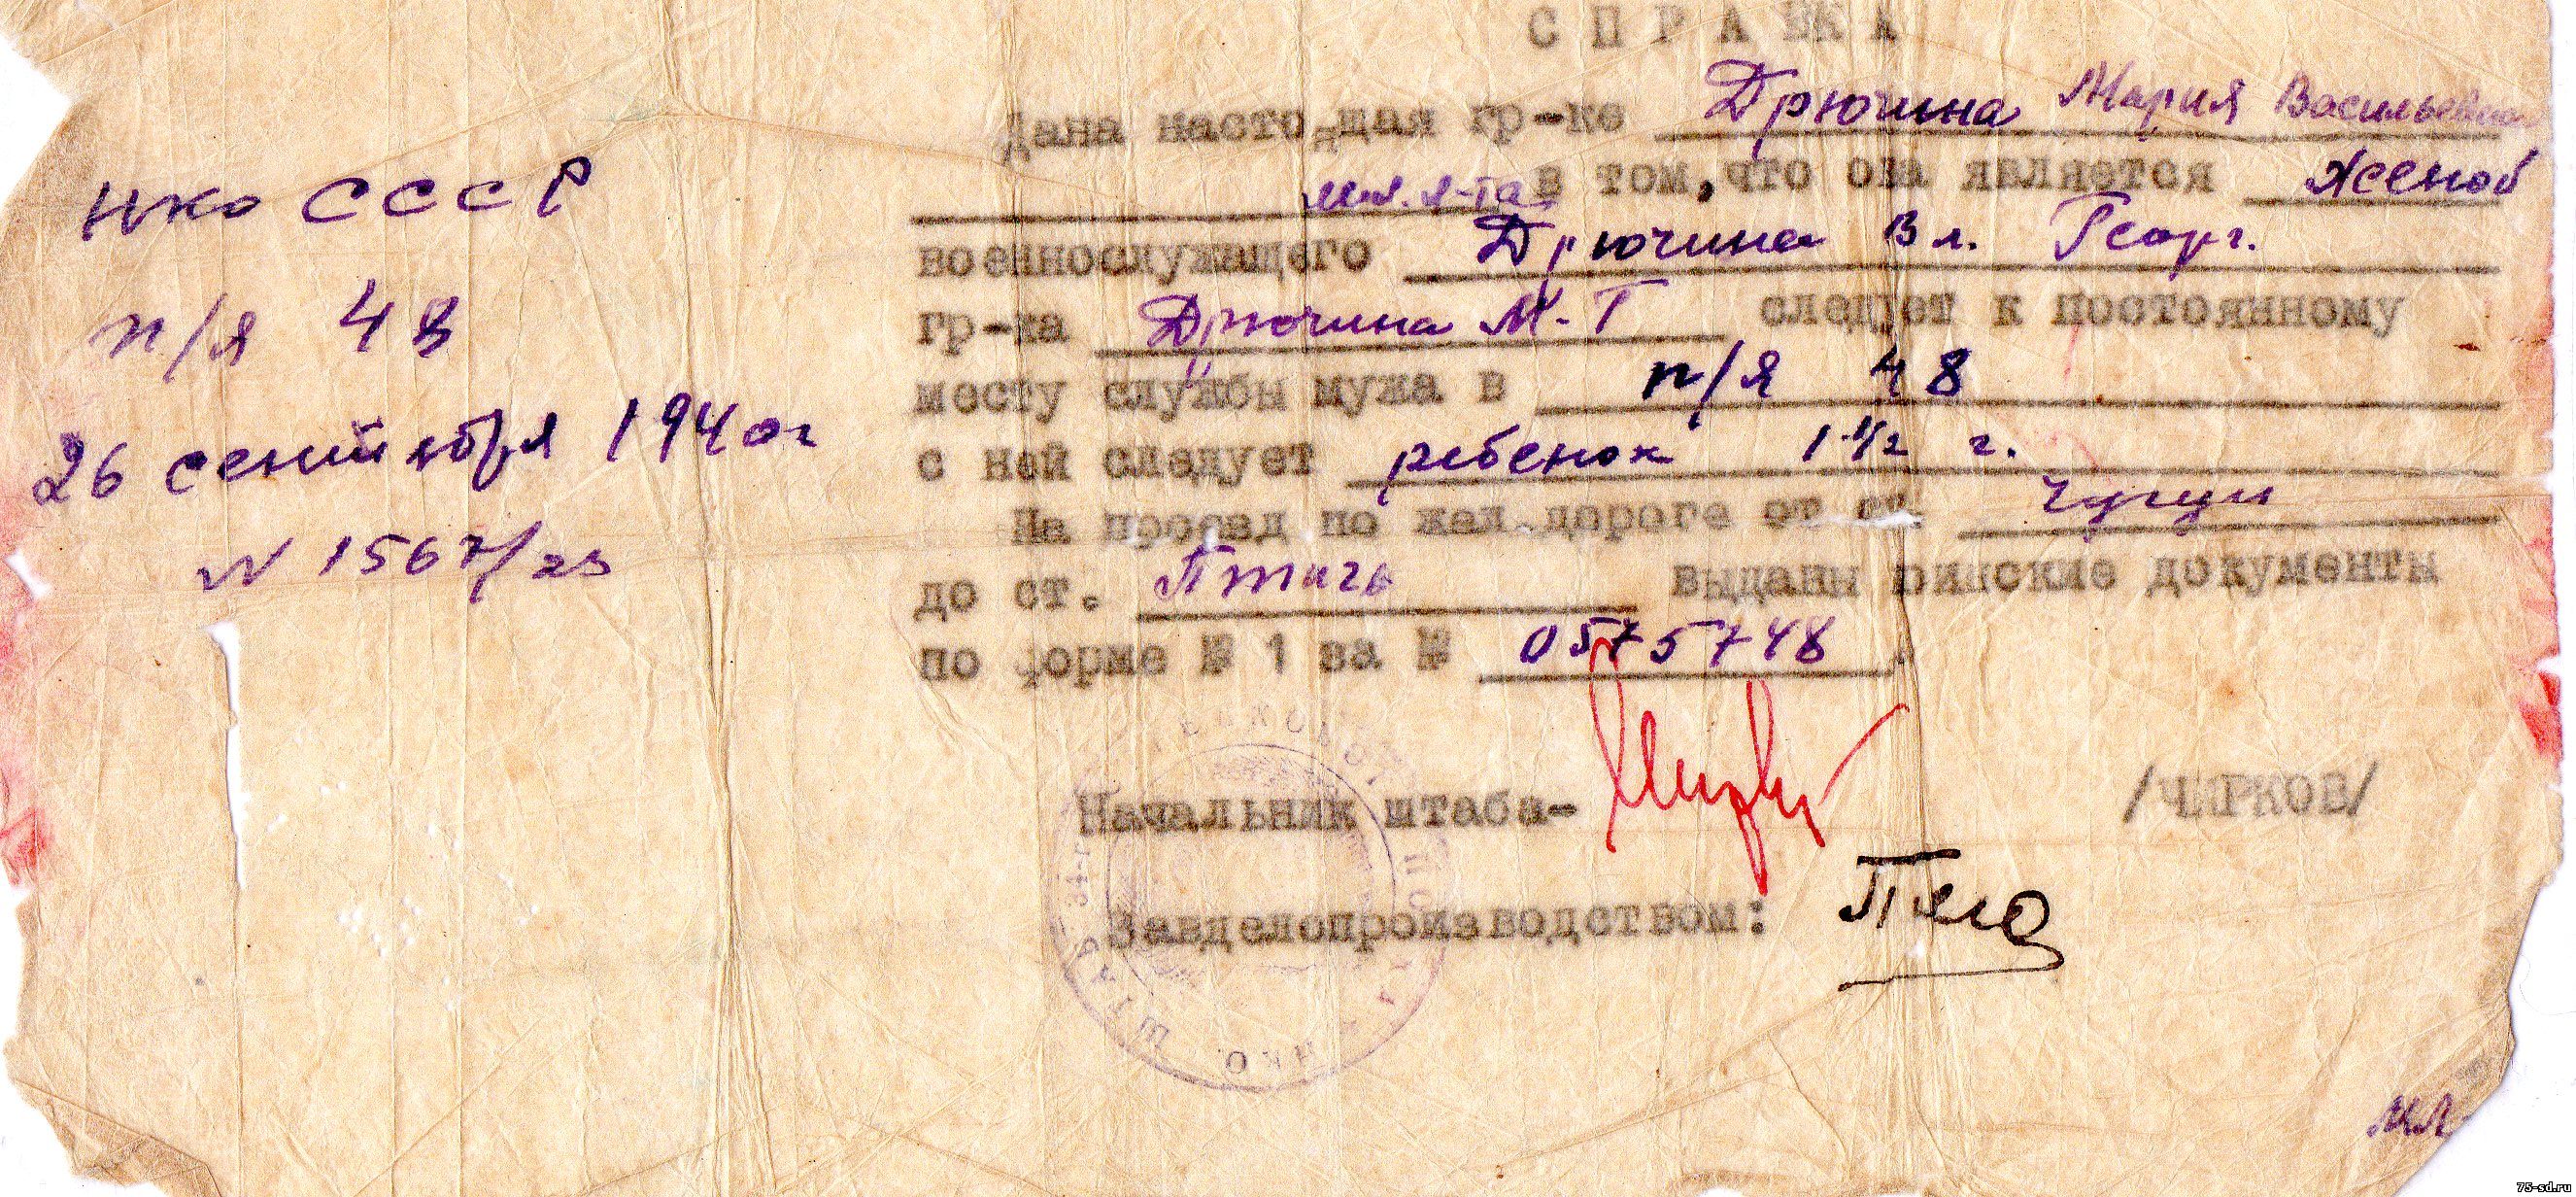 СПРАВКА
Дана настоящая гр-ке Дрючина Мария Васильевна
мл. л-та в том, что она является женой
военнослужащего Дрючина Вл. Георг.
гр-ка Дрючина М. следует к постоянному
месту службы мужа в п/я 48
с ней следует ребенок 1 1/2 г.
На проезд по жел. дороге от ст.
до ст. Птичь выданы документы
по форме № 1 за № 0575748
НКО СССР
п/я 48
26 сентября 1940 г
N 1567/
Начальник штаба- /ЧИРКОВ/
Завделопроизводством:
НКО ШТАБ
75-sd.ru